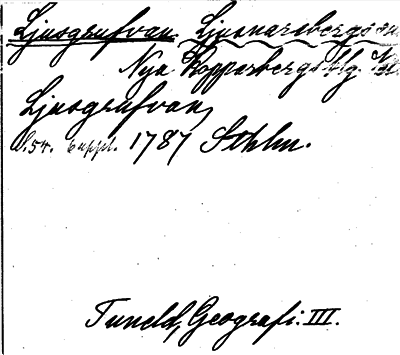 Ljusgrufvan Ljusnarsbergs
Nya Kopparbergs blg.
Ljusgrufvan,
S. 54. 1787 Sthlm.
Tuneld, Geografi. III.